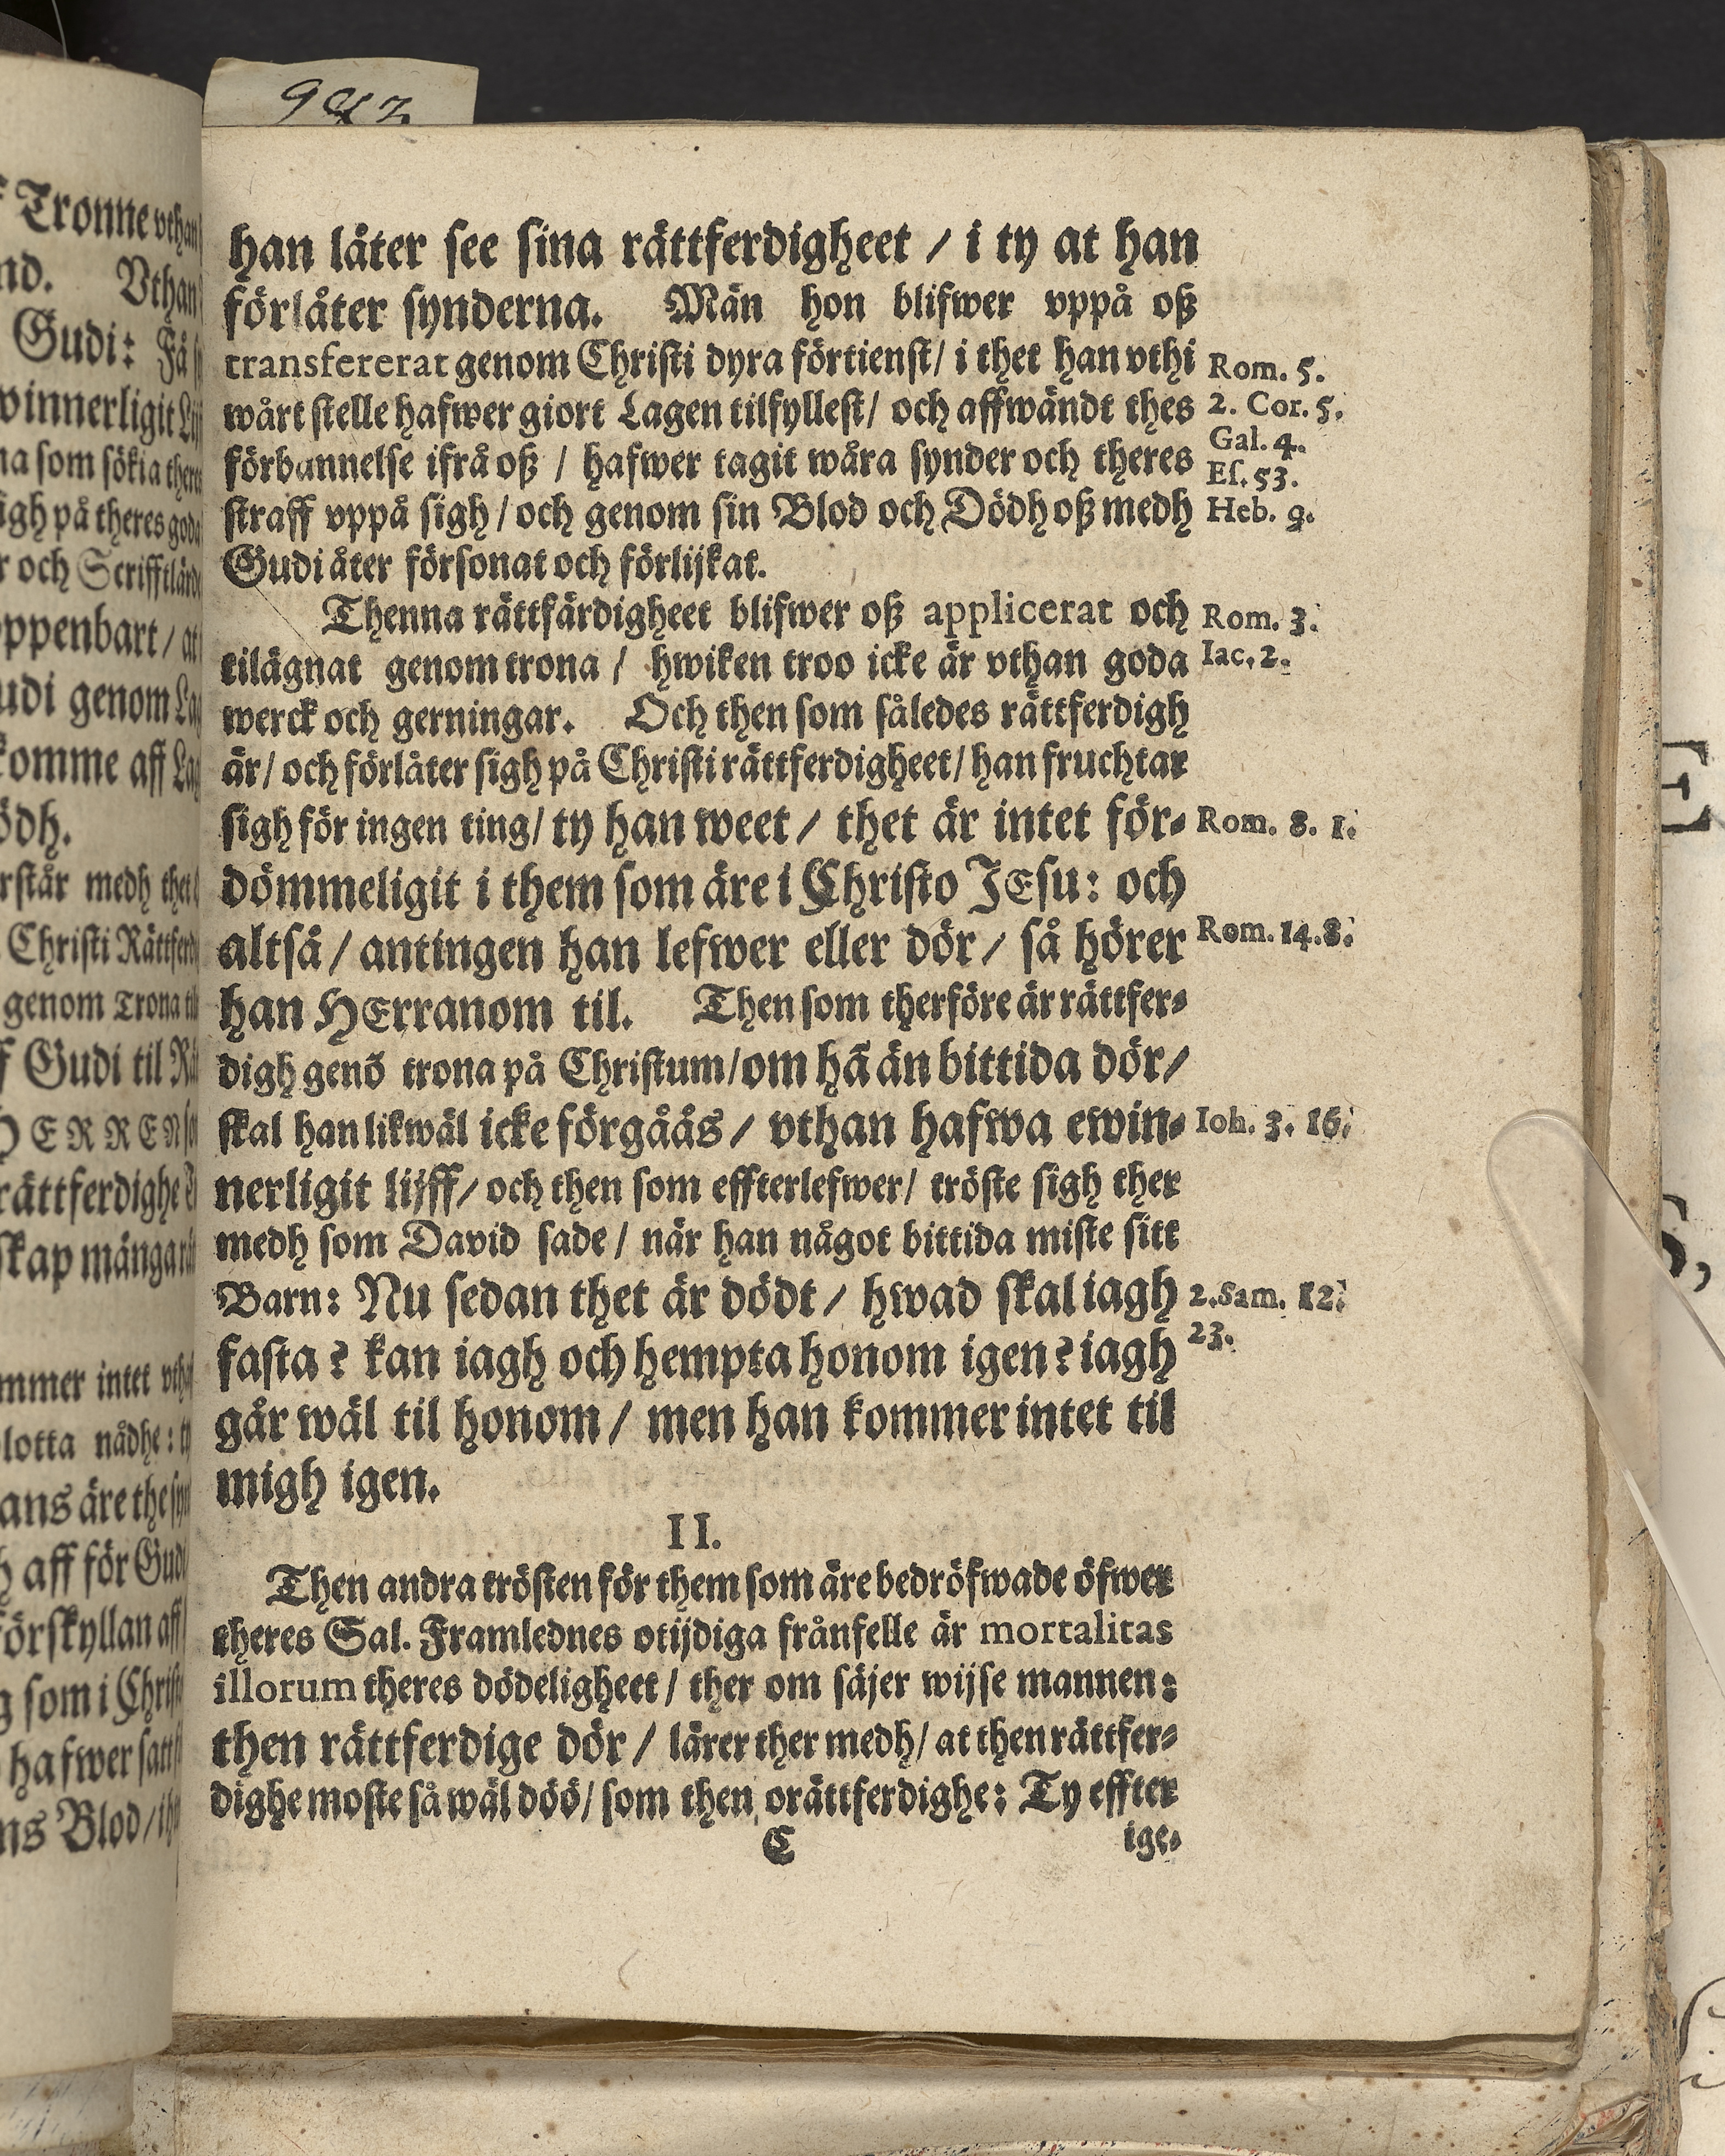 han låter see sina rättferdigheet / i ty at han
förlåter synderna. Män hon blifwer vppå oß
transfererat genom Christi dyra förtienst/ i thet han vthi
wårt stelle hafwer giort Lagen tilfyllest/ och affwändt thes
förbannelse ifrå oß / hafwer tagit wåra synder och theres
straff vppå sigh / och genom sin Blod och Dödh oß medh
Gudi åter försonat och förlijkat.
Rom. 5.
2. Cor. 5.
Gal. 4.
Es. 53.
Heb. 9.
Thenna rättfärdigheet blifwer oß applicerat och
tilägnat genom trona / hwiken troo icke är vthan goda
werck och gerningar. Och then som således rättferdigh
är/ och förlåter sigh på Christi rättferdigheet/ han fruchtar
sigh för ingen ting/ ty han weet / thet är intet för-
dömmeligit i them som äre i Christo JEsu: och
altså / antingen han lefwer eller dör / så hörer
han HErranom til. Then som therföre är rättfer-
digh genõ trona på Christum/ om hã än bittida dör/
skal han likwäl icke förgåås / vthan hafwa ewin-
nerligit lijff/ och then som effterlefwer/ tröste sigh ther
medh som David sade / när han något bittida miste sitt
Barn: Nu sedan thet är dödt / hwad skal iagh
fasta? kan iagh och hempta honom igen? iagh
går wäl til honom / men han kommer intet til
migh igen.
Rom. 3.
Iac. 2.
Rom. 8. 1.
Rom. 14.8.
Ioh. 3. 16.
2. Sam. 12.
23.
II.
Then andra trösten för them som äre bedröfwade öfwer
theres Sal. Framlednes otijdiga frånfelle är mortalitas
illorum theres dödeligheet / ther om säjer wijse mannen:
then rättferdige dör / lärer ther medh/ at then rättfer-
dighe moste så wäl döö/ som then orättferdighe: Ty effter
C
ige-